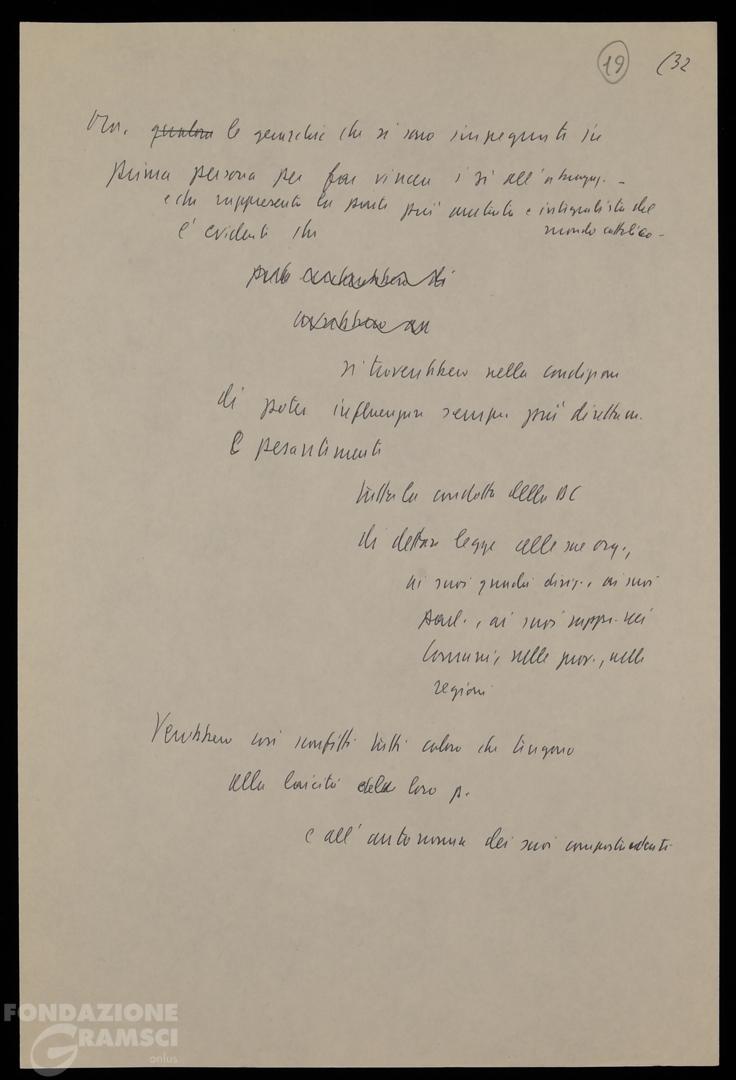 19 (32
Ora, qualora le gerarchie che si sono impegnate in
prima persona per far vincere i sì all'abrogaz. -
e che rappresenta la parte più arretrata e integralista del
mondo cattolico -
è evidente che
si troverebbero nella condizione
di poter influenzare sempre più direttam.
e pesantemente
tutta la condotta della DC
di dettar legge alle sue org.,
ai suoi quadri dirig., ai suoi
parl., ai suoi rappr. nei
Comuni, nelle prov., nelle
regioni
Verrebbero così sconfitti tutti coloro che tengono
alla laicità della loro p.
e all'autonomia dei suoi
FONDAZIONE
GRAMSCI
onlus